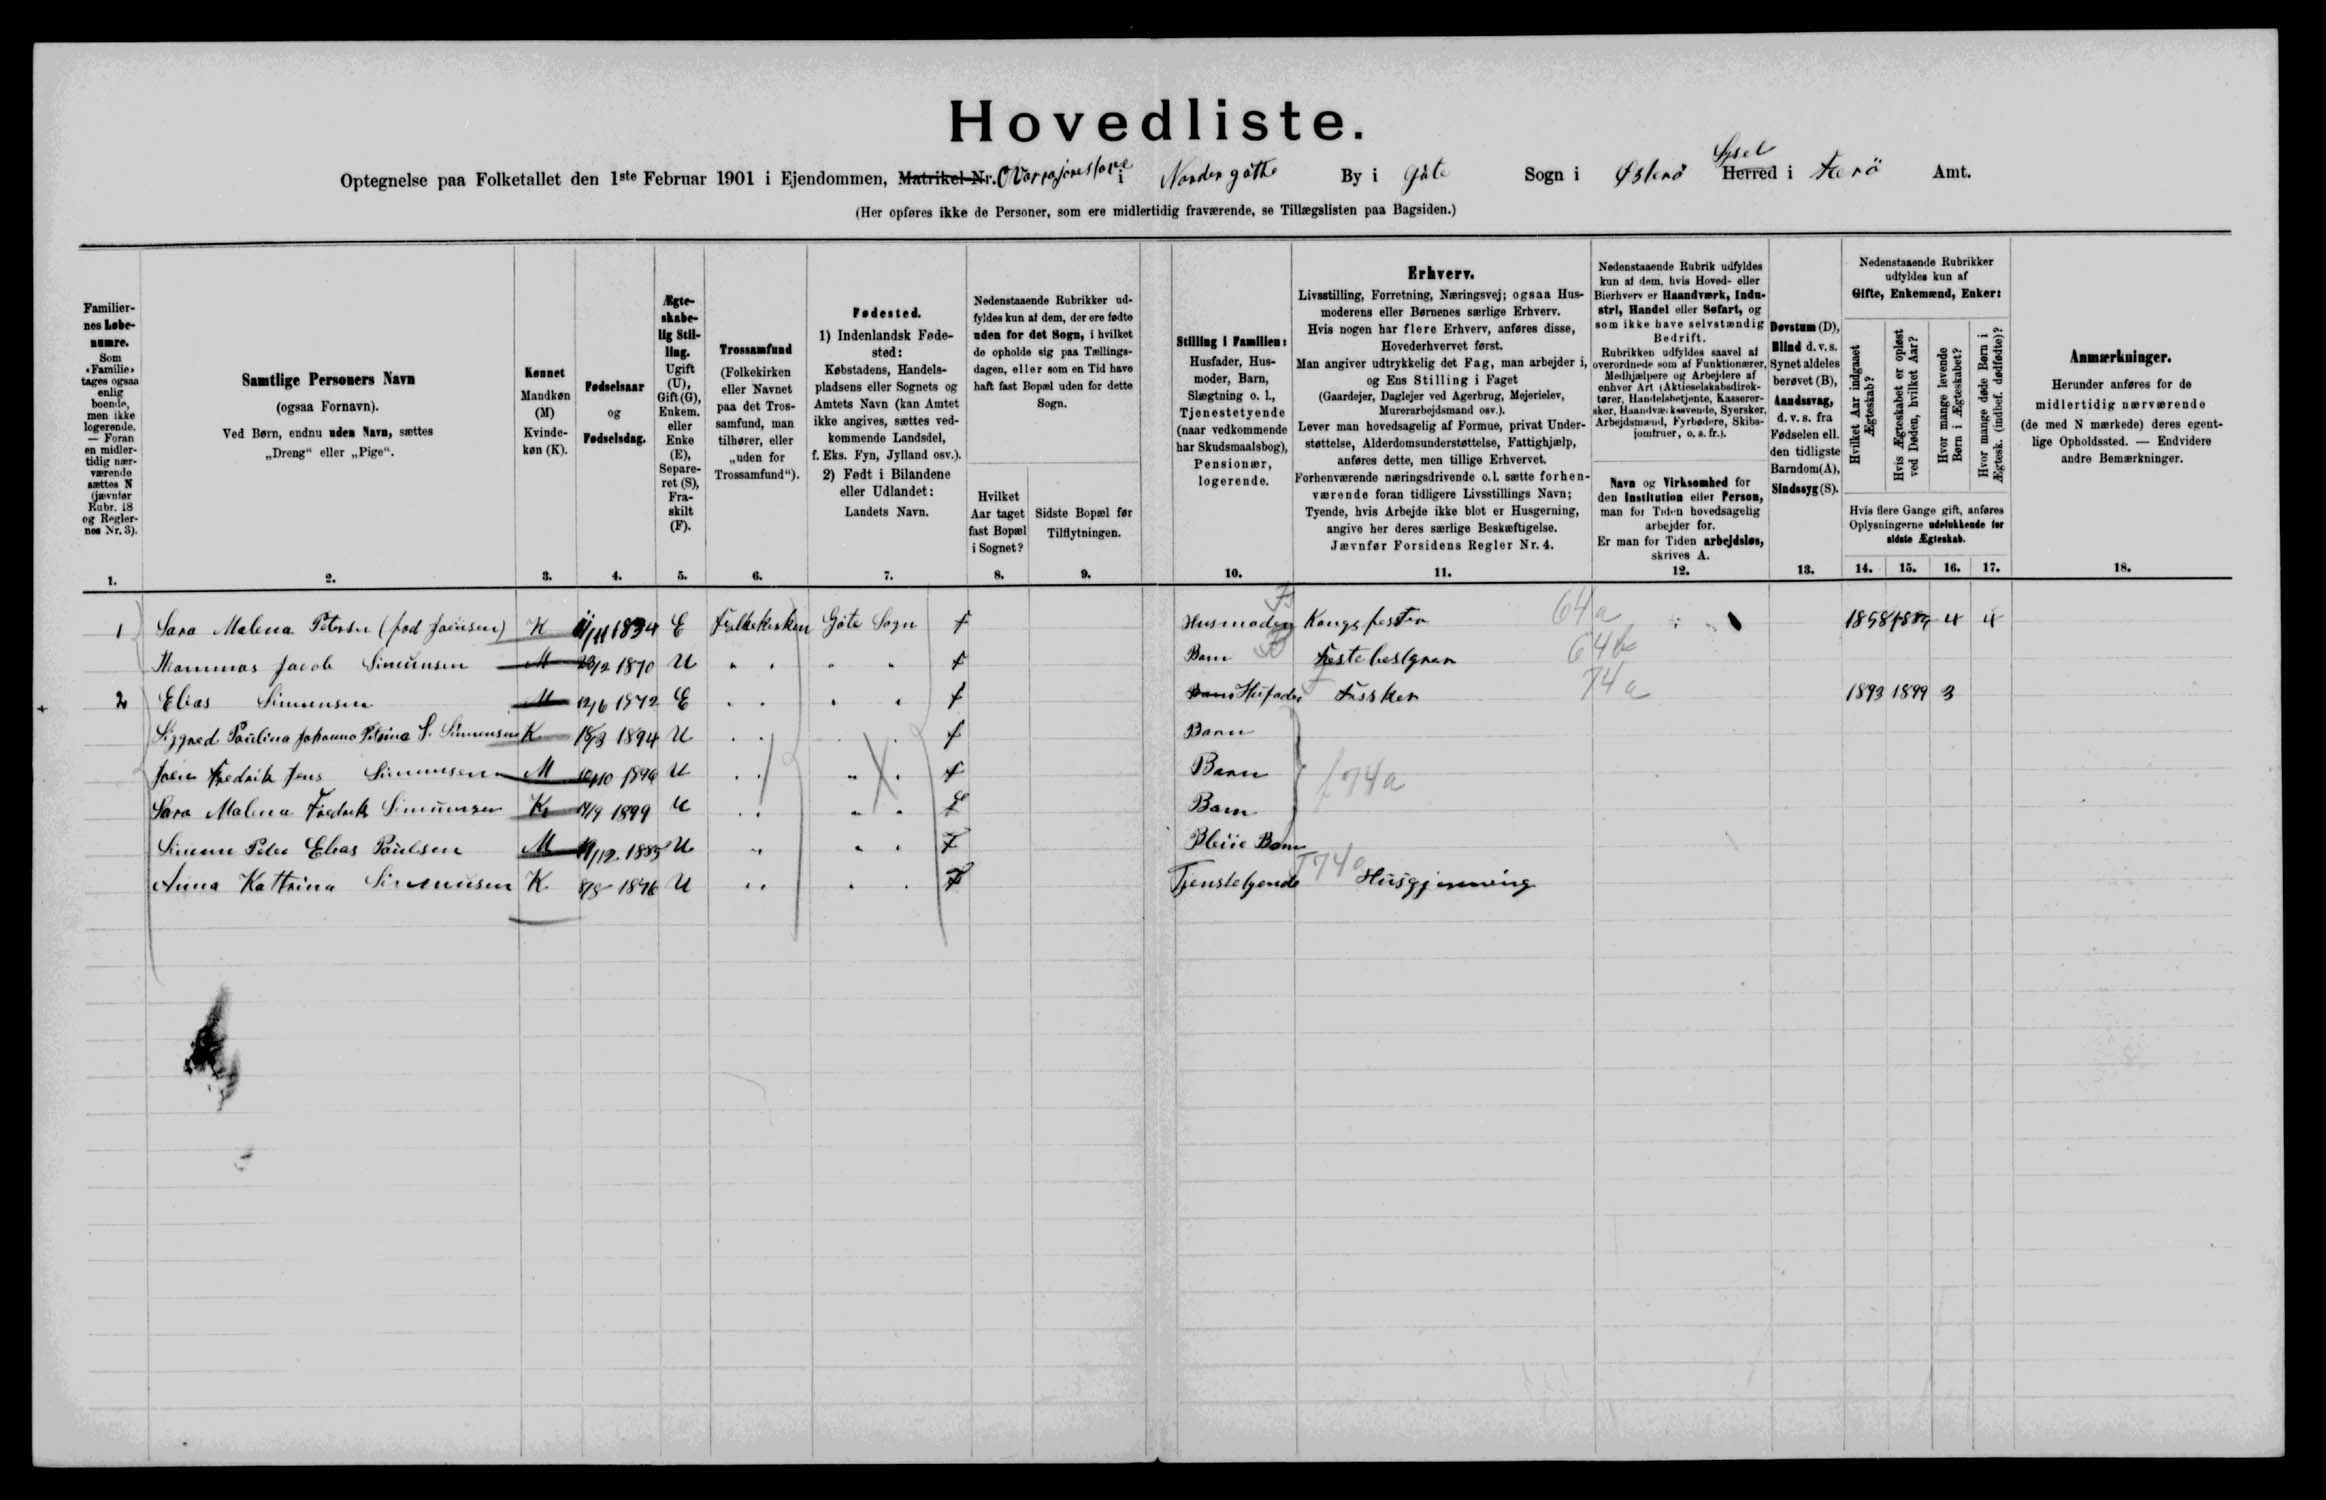 Hovedliste.
Optegnelse paa Folketallet den 1ste Februar 1901 i Ejendommen, Matrikel-Nr. i Nordergøthe By i Gøte Sogn i Østerø Herred Sysel i Færö Amt.
(Her opføres ikke de Personer, som ere midlertidig fraværende, se Tillægslisten paa Bagsiden.)
Familiernes Løbenumre. Som «Familie» tages ogsaa enlig boende, men ikke logerende. — Foran en midlertidig nærværende sættes N (jævnfør Rubr. 18 og Reglernes Nr. 3).
Samtlige Personers Navn (ogsaa Fornavn). Ved Børn, endnu uden Navn, sættes „Dreng“ eller „Pige“.
Kønnet Mandkøn (M) Kvindekøn (K).
Fødselsaar og Fødselsdag.
Ægteskabelig Stilling. Ugift (U), Gift (G), Enkem. eller Enke (E), Separeret (S), Fraskilt (F).
Trossamfund (Folkekirken eller Navnet paa det Trossamfund, man tilhører, eller „uden for Trossamfund“).
Fødested. 1) Indenlandsk Fødested: Købstadens, Handelspladsens eller Sognets og Amtets Navn (kan Amtet ikke angives, sættes vedkommende Landsdel, f. Eks. Fyn, Jylland osv.). 2) Født i Bilandene eller Udlandet: Landets Navn.
Nedenstaaende Rubrikker udfyldes kun af dem, der ere fødte uden for det Sogn, i hvilket de opholde sig paa Tællingsdagen, eller som en Tid have haft fast Bopæl uden for dette Sogn.
Hvilket Aar taget fast Bopæl i Sognet?
Sidste Bopæl før Tilflytningen.
Stilling i Familien: Husfader, Husmoder, Barn, Slægtning o. l., Tjenestetyende (naar vedkommende har Skudsmaalsbog), Pensionær, logerende.
Erhverv.
Livsstilling, Forretning, Næringsvej; ogsaa Husmoderens eller Børnenes særlige Erhverv.
Hvis nogen har flere Erhverv, anføres disse, Hovederhvervet først.
Man angiver udtrykkelig det Fag, man arbejder i, og Ens Stilling i Faget (Gaardejer, Daglejer ved Agerbrug, Mejerielev, Murerarbejdsmand osv.).
Lever man hovedsagelig af Formue, privat Understøttelse, Alderdomsunderstøttelse, Fattighjælp, anføres dette, men tillige Erhvervet.
Forhenværende næringsdrivende o. l. sætte forhenværende foran tidligere Livsstillings Navn; Tyende, hvis Arbejde ikke blot er Husgerning, angive her deres særlige Beskæftigelse.
Jævnfør Forsidens Regler Nr. 4.
Nedenstaaende Rubrik udfyldes kun af dem, hvis Hoved- eller Bierhverv er Haandværk, Industri, Handel eller Søfart, og som ikke have selvstændig Bedrift.
Rubrikken udfyldes saavel af overordnede som af Funktionærer, Medhjælpere og Arbejdere af enhver Art (Aktieselskabsdirektører, Handelsbetjente, Kasserersker, Haandværkssvende, Syersker, Arbejdsmænd, Fyrbødere, Skibsjomfruer, o. s. fr.).
Navn og Virksomhed for den Institution eller Person, man for Tiden hovedsagelig arbejder for.
Er man for Tiden arbejdsløs, skrives A.
Døvstum (D), Blind d. v. s. Synet aldeles berøvet (B), Aandssvag, d. v. s. fra Fødselen ell. den tidligste Barndom (A), Sindssyg (S).
Nedenstaaende Rubrikker udfyldes kun af Gifte, Enkemænd, Enker:
Hvilket Aar indgaaet Ægteskab?
Hvis Ægteskabet er opløst ved Døden, hvilket Aar?
Hvor mange levende Børn i Ægteskabet?
Hvor mange døde Børn i Ægtesk. (indbef. dødfødte)?
Hvis flere Gange gift, anføres Oplysningerne udelukkende for sidste Ægteskab.
Anmærkninger. Herunder anføres for de midlertidig nærværende (de med N mærkede) deres egentlige Opholdssted. — Endvidere andre Bemærkninger.
1. 2. 3. 4. 5. 6. 7. 8. 9. 10. 11. 12. 13. 14. 15. 16. 17. 18.
1 Sara Malena Petersen (fød Joensen) K 1834 E Folkekirken Göte Sogn f Husmoder Kongsfester 64a 1858 4 4
Jacob Simunsen M 1870 U " " " " f Barn Festebestyrer 64b
2 Elias Simunsen M 12/6 1872 E " " " " f Barn Husfader Fissker 74a 1893 1899 3
Paulina Johanna Petrina S. Simunsen K 1894 U " " f Barn
Joen Fredrik Jens Simunsen M 1896 U " " " " f Barn f 74a
Sara Malena Fredrik Simunsen K 1899 U " " " " f Barn
Simun Peter Elias Paulsen M 1885 U " " " f Pleie Barn
Anna Kattrina Simunsen K 1876 U " " " " f Tjenstetyende T74a Husgjerning